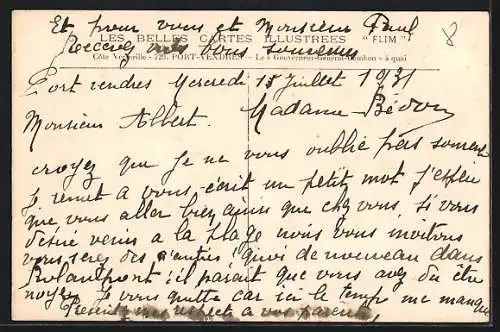 Et pour vous et Monsieur Paul
Recevez mes bons souvenirs
LES BELLES CARTES ILLUSTREES "FLIM"
Côte Vermeille - 729. PORT-VENDRES — Le « Gouverneur-Général-Cambon » à quai
Port vendres Mercredi 15 Juillet 1931
Madame
Monsieur Albert.
croyez que Je ne vous oublie pas souvent
Je remet a vous écrit un petit mot J'espère
que vous aller bien ainsi que chez vous. Si vous
désiré venir a la plage nous vous invitons
vous serez des Quoi de nouveau dans
il parait que vous avez du être
noyer. Je vous quitte car ici le temp me manque
respect a vos parents